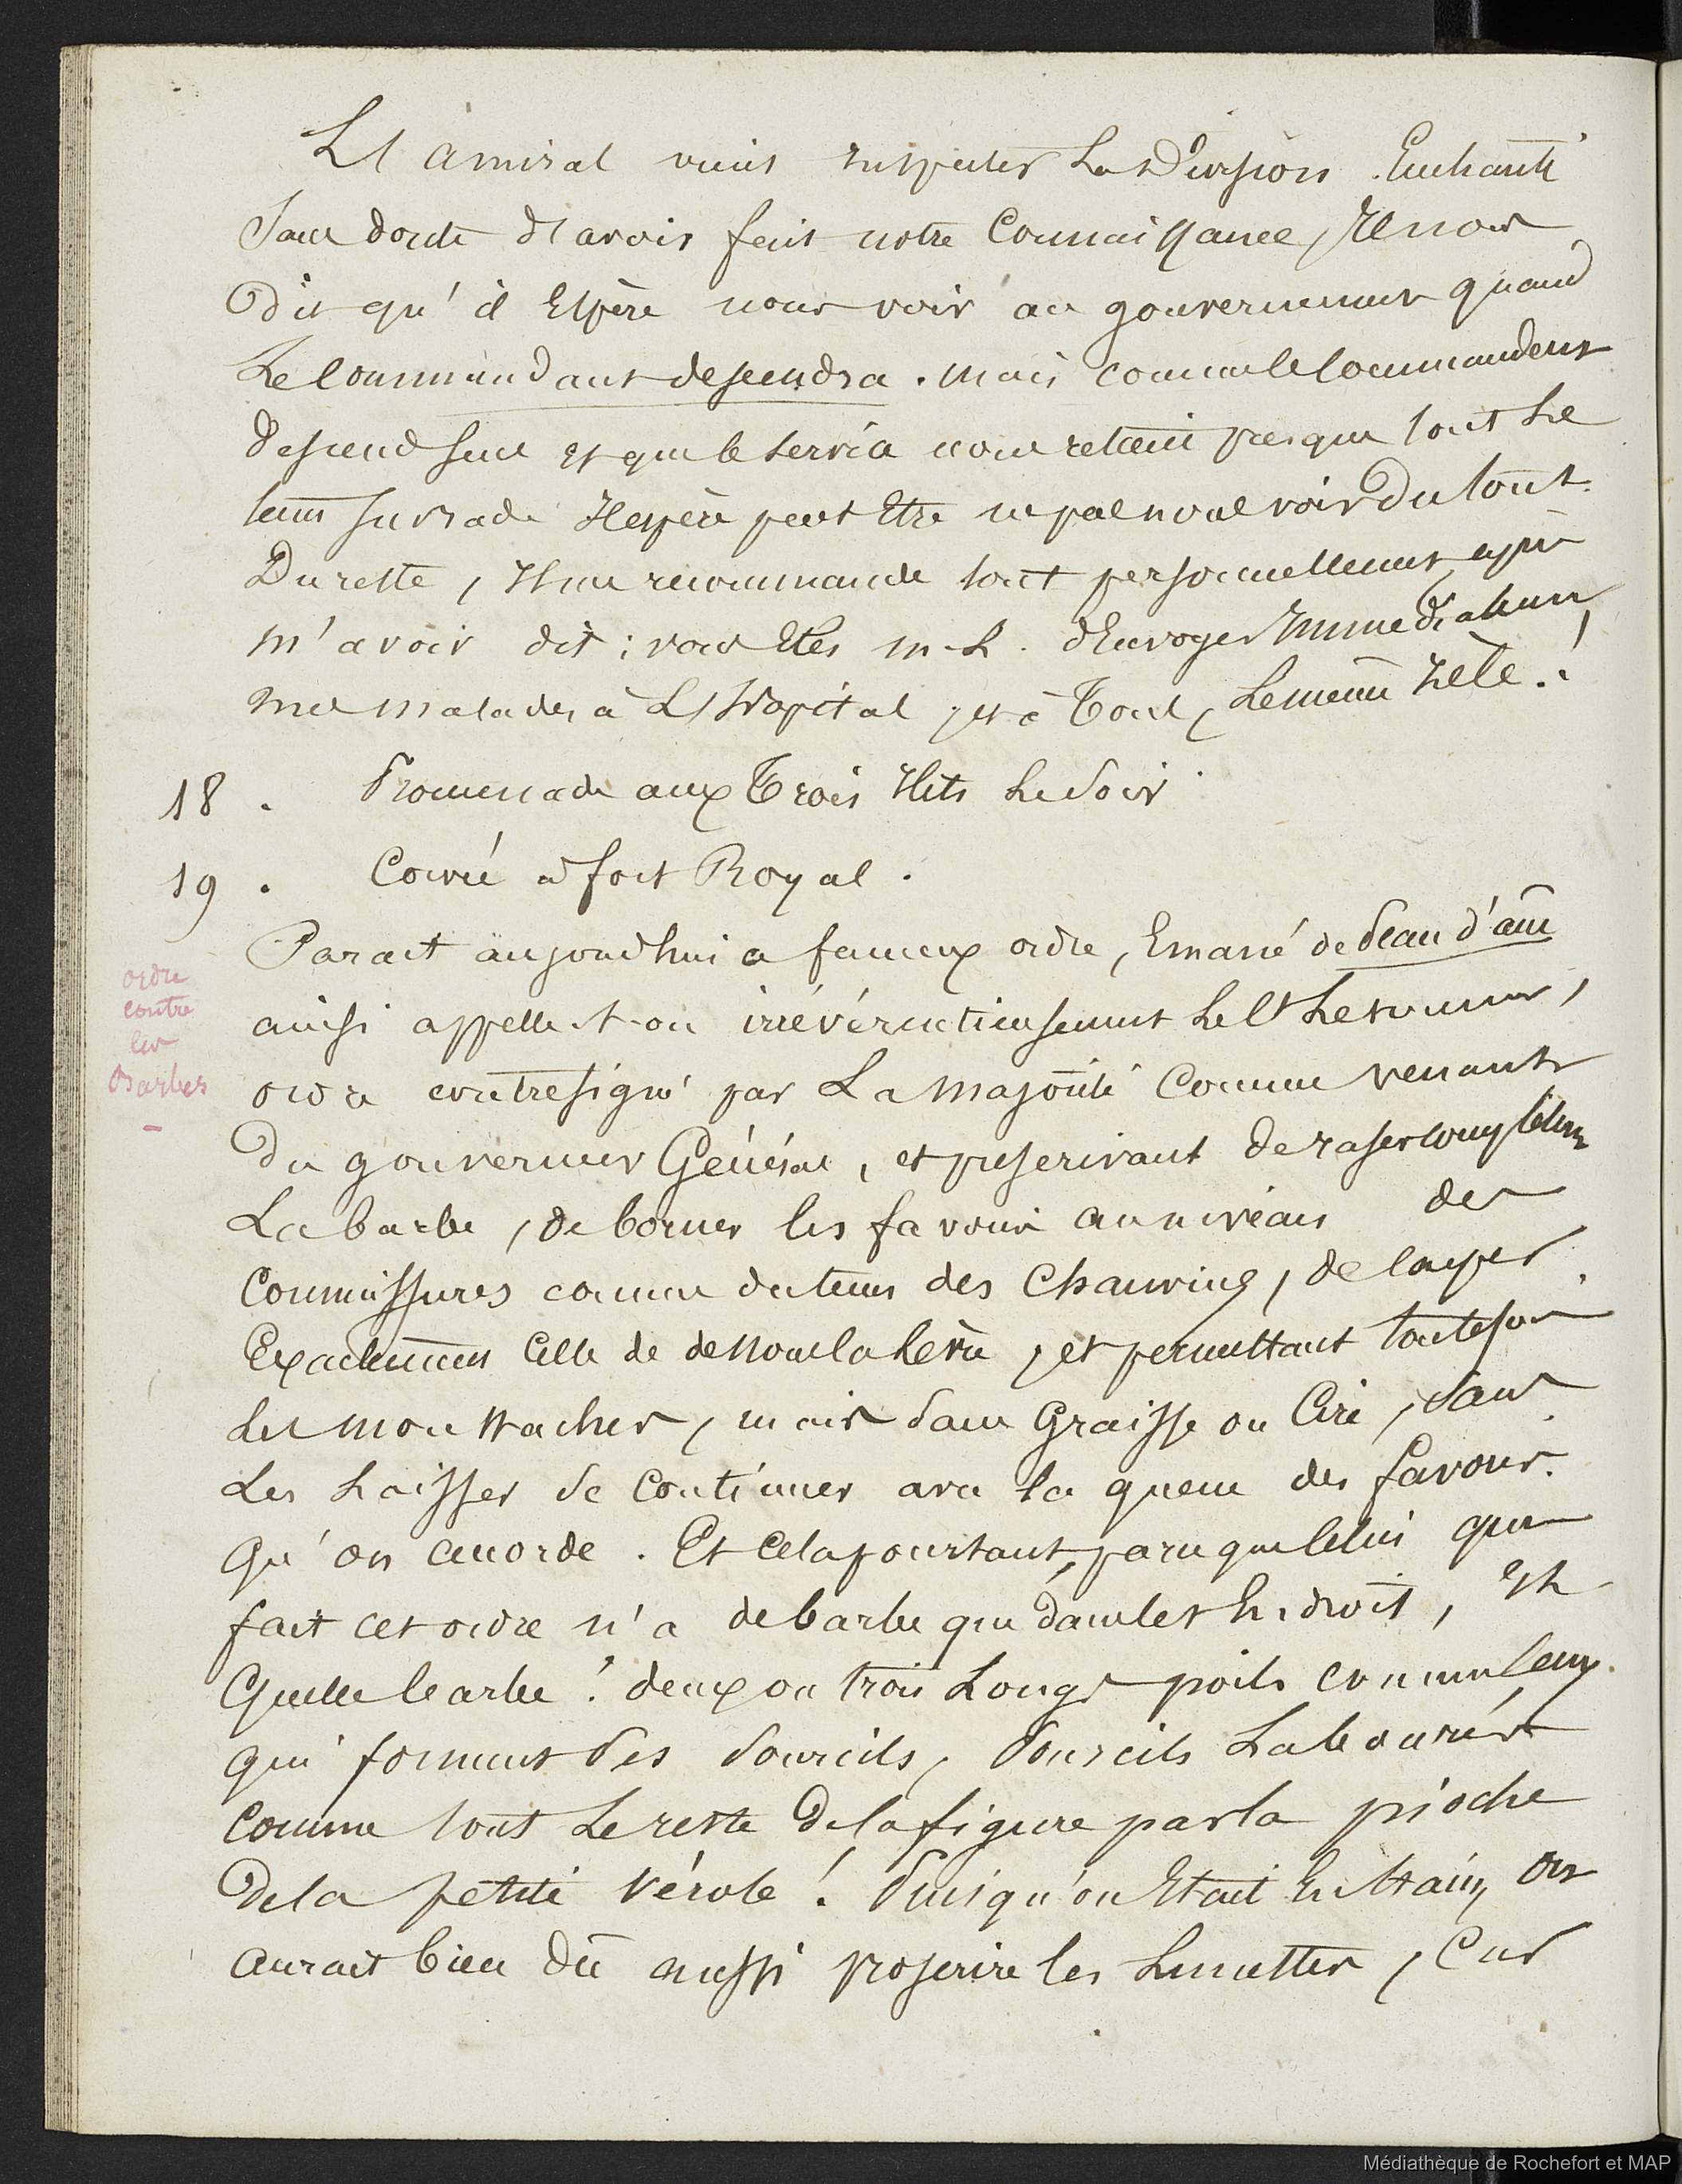 L'amiral vient inspecter La Division. Enchanté
Sans doute d'avoir fait notre Connaissance, Il nous
dit qu'il Espère nous voir au gouvernement quand
Le Commandant descendra. mais comme le Commandant
descend seul et que le service nous retient presque tout Le
tems sur rade Il espère peut Etre ne pas nous voir Du tout.
Du reste, Il me recommande tout personnellement, après
m'avoir dit: vous Etes m. L. d'Envoyer Immédiatem
mes malades à L'Hopital, et à Tous, Le même zèle.!
18 . Promenade aux Trois Ilets Le Soir.
19 . Corvée à Fort Royal.
Parait aujourdhui ce fameux ordre, Emané de Peau d'âne
ordre
contre
les
Barbes
ainsi appelle-t-on irrévérencieusement Le Ct
ordre contresigné par La majorité Comme venant
Du gouverneur Général, et prescrivant de raser complétem
La barbe, de borner les favoris au niveau des
Commissures comme du tems des Chauvins, de couper
Exactement Celle de dessous la Lèvre, et permettant toutefois
Les moustaches, mais sans Graisse ou Cire, Sans
Les Laisser se Continuer avec la queue des favoris
qu'on accorde. Et Cela pourtant, parce que Celui qui
fait cet ordre n'a de barbe que dans les endroit, Et
quelle barbe! deux ou trois Longs poils comme Ceux
qui forment ses Sourcils, Sourcils Labourés
Comme tout Le reste de la figure par la pioche
De la petite vérole! Puisqu'on Etait En train, on
aurait bien dû aussi proscrire les Lunettes, Car
Médiathèque de Rochefort et MAP